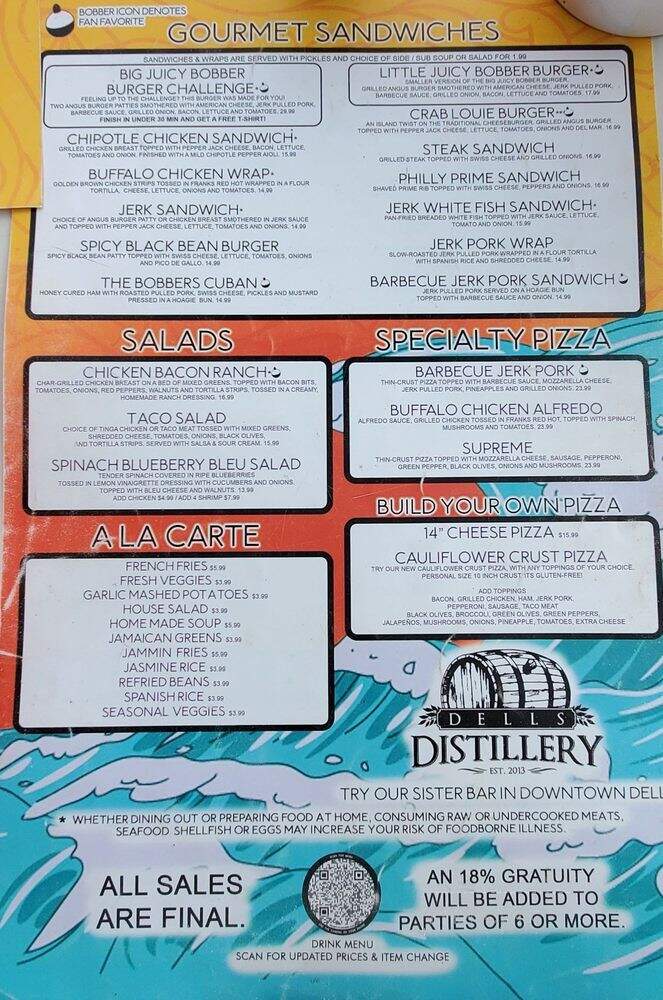 BOBBER ICON DENOTES
FAN FAVORITE
GOURMET SANDWICHES
SANDWICHES & WRAPS ARE SERVED WITH PICKLES AND CHOICE OF SIDE / SUB SOUP OR SALAD FOR 1.99
BIG JUICY BOBBER
BURGER CHALLENGE*
FEELING UP TO THE CHALLENGE? THIS BURGER WAS MADE FOR YOU!
TWO ANGUS BURGER PATTIES SMOTHERED WITH AMERICAN CHEESE, JERK PULLED PORK,
BARBECUE SAUCE, GRILLED ONION, BACON, LETTUCE AND TOMATOES. 29.99
FINISH IN UNDER 30 MIN AND GET A FREE T-SHIRT!
CHIPOTLE CHICKEN SANDWICH*
GRILLED CHICKEN BREAST TOPPED WITH PEPPER JACK CHEESE, BACON, LETTUCE,
TOMATOES AND ONION. FINISHED WITH A MILD CHIPOTLE PEPPER AIOLI. 15.99
BUFFALO CHICKEN WRAP*
GOLDEN BROWN CHICKEN STRIPS TOSSED IN FRANKS RED HOT WRAPPED IN A FLOUR
TORTILLA, CHEESE, LETTUCE, ONIONS AND TOMATOES. 14.99
JERK SANDWICH*
CHOICE OF ANGUS BURGER PATTY OR CHICKEN BREAST SMOTHERED IN JERK SAUCE
AND TOPPED WITH PEPPER JACK CHEESE, LETTUCE, TOMATOES AND ONIONS. 14.99
SPICY BLACK BEAN BURGER
SPICY BLACK BEAN PATTY TOPPED WITH SWISS CHEESE, LETTUCE, TOMATOES, ONIONS
AND PICO DE GALLO. 14.99
THE BOBBERS CUBAN
HONEY CURED HAM WITH ROASTED PULLED PORK, SWISS CHEESE, PICKLES AND MUSTARD
PRESSED IN A HOAGIE BUN. 14.99
LITTLE JUICY BOBBER BURGER*
SMALLER VERSION OF THE BIG JUICY BOBBER BURGER.
GRILLED ANGUS BURGER SMOTHERED WITH AMERICAN CHEESE, JERK PULLED PORK,
BARBECUE SAUCE, GRILLED ONION, BACON, LETTUCE AND TOMATOES. 17.99
CRAB LOUIE BURGER*
AN ISLAND TWIST ON THE TRADITIONAL CHEESEBURGER, GRILLED ANGUS BURGER
TOPPED WITH PEPPER JACK CHEESE, LETTUCE, TOMATOES, ONIONS AND DEL MAR. 16.99
STEAK SANDWICH
GRILLED STEAK TOPPED WITH SWISS CHEESE AND GRILLED ONIONS. 16.99
PHILLY PRIME SANDWICH
SHAVED PRIME RIB TOPPED WITH SWISS CHEESE, PEPPERS AND ONIONS. 16.99
JERK WHITE FISH SANDWICH*
PAN-FRIED BREADED WHITE FISH TOPPED WITH JERK SAUCE, LETTUCE,
TOMATO AND ONION. 15.99
JERK PORK WRAP
SLOW-ROASTED JERK PULLED PORK WRAPPED IN A FLOUR TORTILLA
WITH SPANISH RICE AND SHREDDED CHEESE. 14.99
BARBECUE JERK PORK SANDWICH
JERK PULLED PORK SERVED ON A HOAGIE BUN
TOPPED WITH BARBECUE SAUCE AND ONION. 14.99
SALADS
CHICKEN BACON RANCH*
CHAR-GRILLED CHICKEN BREAST ON A BED OF MIXED GREENS, TOPPED WITH BACON BITS,
TOMATOES, ONIONS, RED PEPPERS, WALNUTS AND TORTILLA STRIPS. TOSSED IN A CREAMY,
HOMEMADE RANCH DRESSING. 16.99
TACO SALAD
CHOICE OF TINGA CHICKEN OR TACO MEAT TOSSED WITH MIXED GREENS,
SHREDDED CHEESE, TOMATOES, ONIONS, BLACK OLIVES,
AND TORTILLA STRIPS. SERVED WITH SALSA & SOUR CREAM. 15.99
SPINACH BLUEBERRY BLEU SALAD
TENDER SPINACH COVERED IN RIPE BLUEBERRIES
TOSSED IN LEMON VINAIGRETTE DRESSING WITH CUCUMBERS AND ONIONS.
TOPPED WITH BLEU CHEESE AND WALNUTS. 13.99
ADD CHICKEN $4.99 / ADD 4 SHRIMP $7.99
SPECIALTY PIZZA
BARBECUE JERK PORK
THIN-CRUST PIZZA TOPPED WITH BARBECUE SAUCE, MOZZARELLA CHEESE,
JERK PULLED PORK, PINEAPPLES AND GRILLED ONIONS. 23.99
BUFFALO CHICKEN ALFREDO
ALFREDO SAUCE, GRILLED CHICKEN TOSSED IN FRANKS RED HOT, TOPPED WITH SPINACH,
MUSHROOMS AND TOMATOES. 23.99
SUPREME
THIN-CRUST PIZZA TOPPED WITH MOZZARELLA CHEESE, SAUSAGE, PEPPERONI,
GREEN PEPPER, BLACK OLIVES, ONIONS AND MUSHROOMS. 23.99
BUILD YOUR OWN PIZZA
14" CHEESE PIZZA $15.99
CAULIFLOWER CRUST PIZZA
TRY OUR NEW CAULIFLOWER CRUST PIZZA, WITH ANY TOPPINGS OF YOUR CHOICE.
PERSONAL SIZE 10 INCH CRUST. ITS GLUTEN-FREE!
ADD TOPPINGS
BACON, GRILLED CHICKEN, HAM, JERK PORK,
PEPPERONI, SAUSAGE, TACO MEAT
BLACK OLIVES, BROCCOLI, GREEN OLIVES, GREEN PEPPERS,
JALAPEÑOS, MUSHROOMS, ONIONS, PINEAPPLE, TOMATOES, EXTRA CHEESE
A LA CARTE
FRENCH FRIES $5.99
FRESH VEGGIES $3.99
GARLIC MASHED POTATOES $3.99
HOUSE SALAD $3.99
HOME MADE SOUP $5.99
JAMAICAN GREENS $3.99
JAMMIN FRIES $5.99
JASMINE RICE $3.99
REFRIED BEANS $3.99
SPANISH RICE $3.99
SEASONAL VEGGIES $3.99
DELLS
DISTILLERY
EST. 2013
TRY OUR SISTER BAR IN DOWNTOWN DELL
* WHETHER DINING OUT OR PREPARING FOOD AT HOME, CONSUMING RAW OR UNDERCOOKED MEATS,
SEAFOOD SHELLFISH OR EGGS MAY INCREASE YOUR RISK OF FOODBORNE ILLNESS.
ALL SALES
ARE FINAL.
AN 18% GRATUITY
WILL BE ADDED TO
PARTIES OF 6 OR MORE.
DRINK MENU
SCAN FOR UPDATED PRICES & ITEM CHANGE